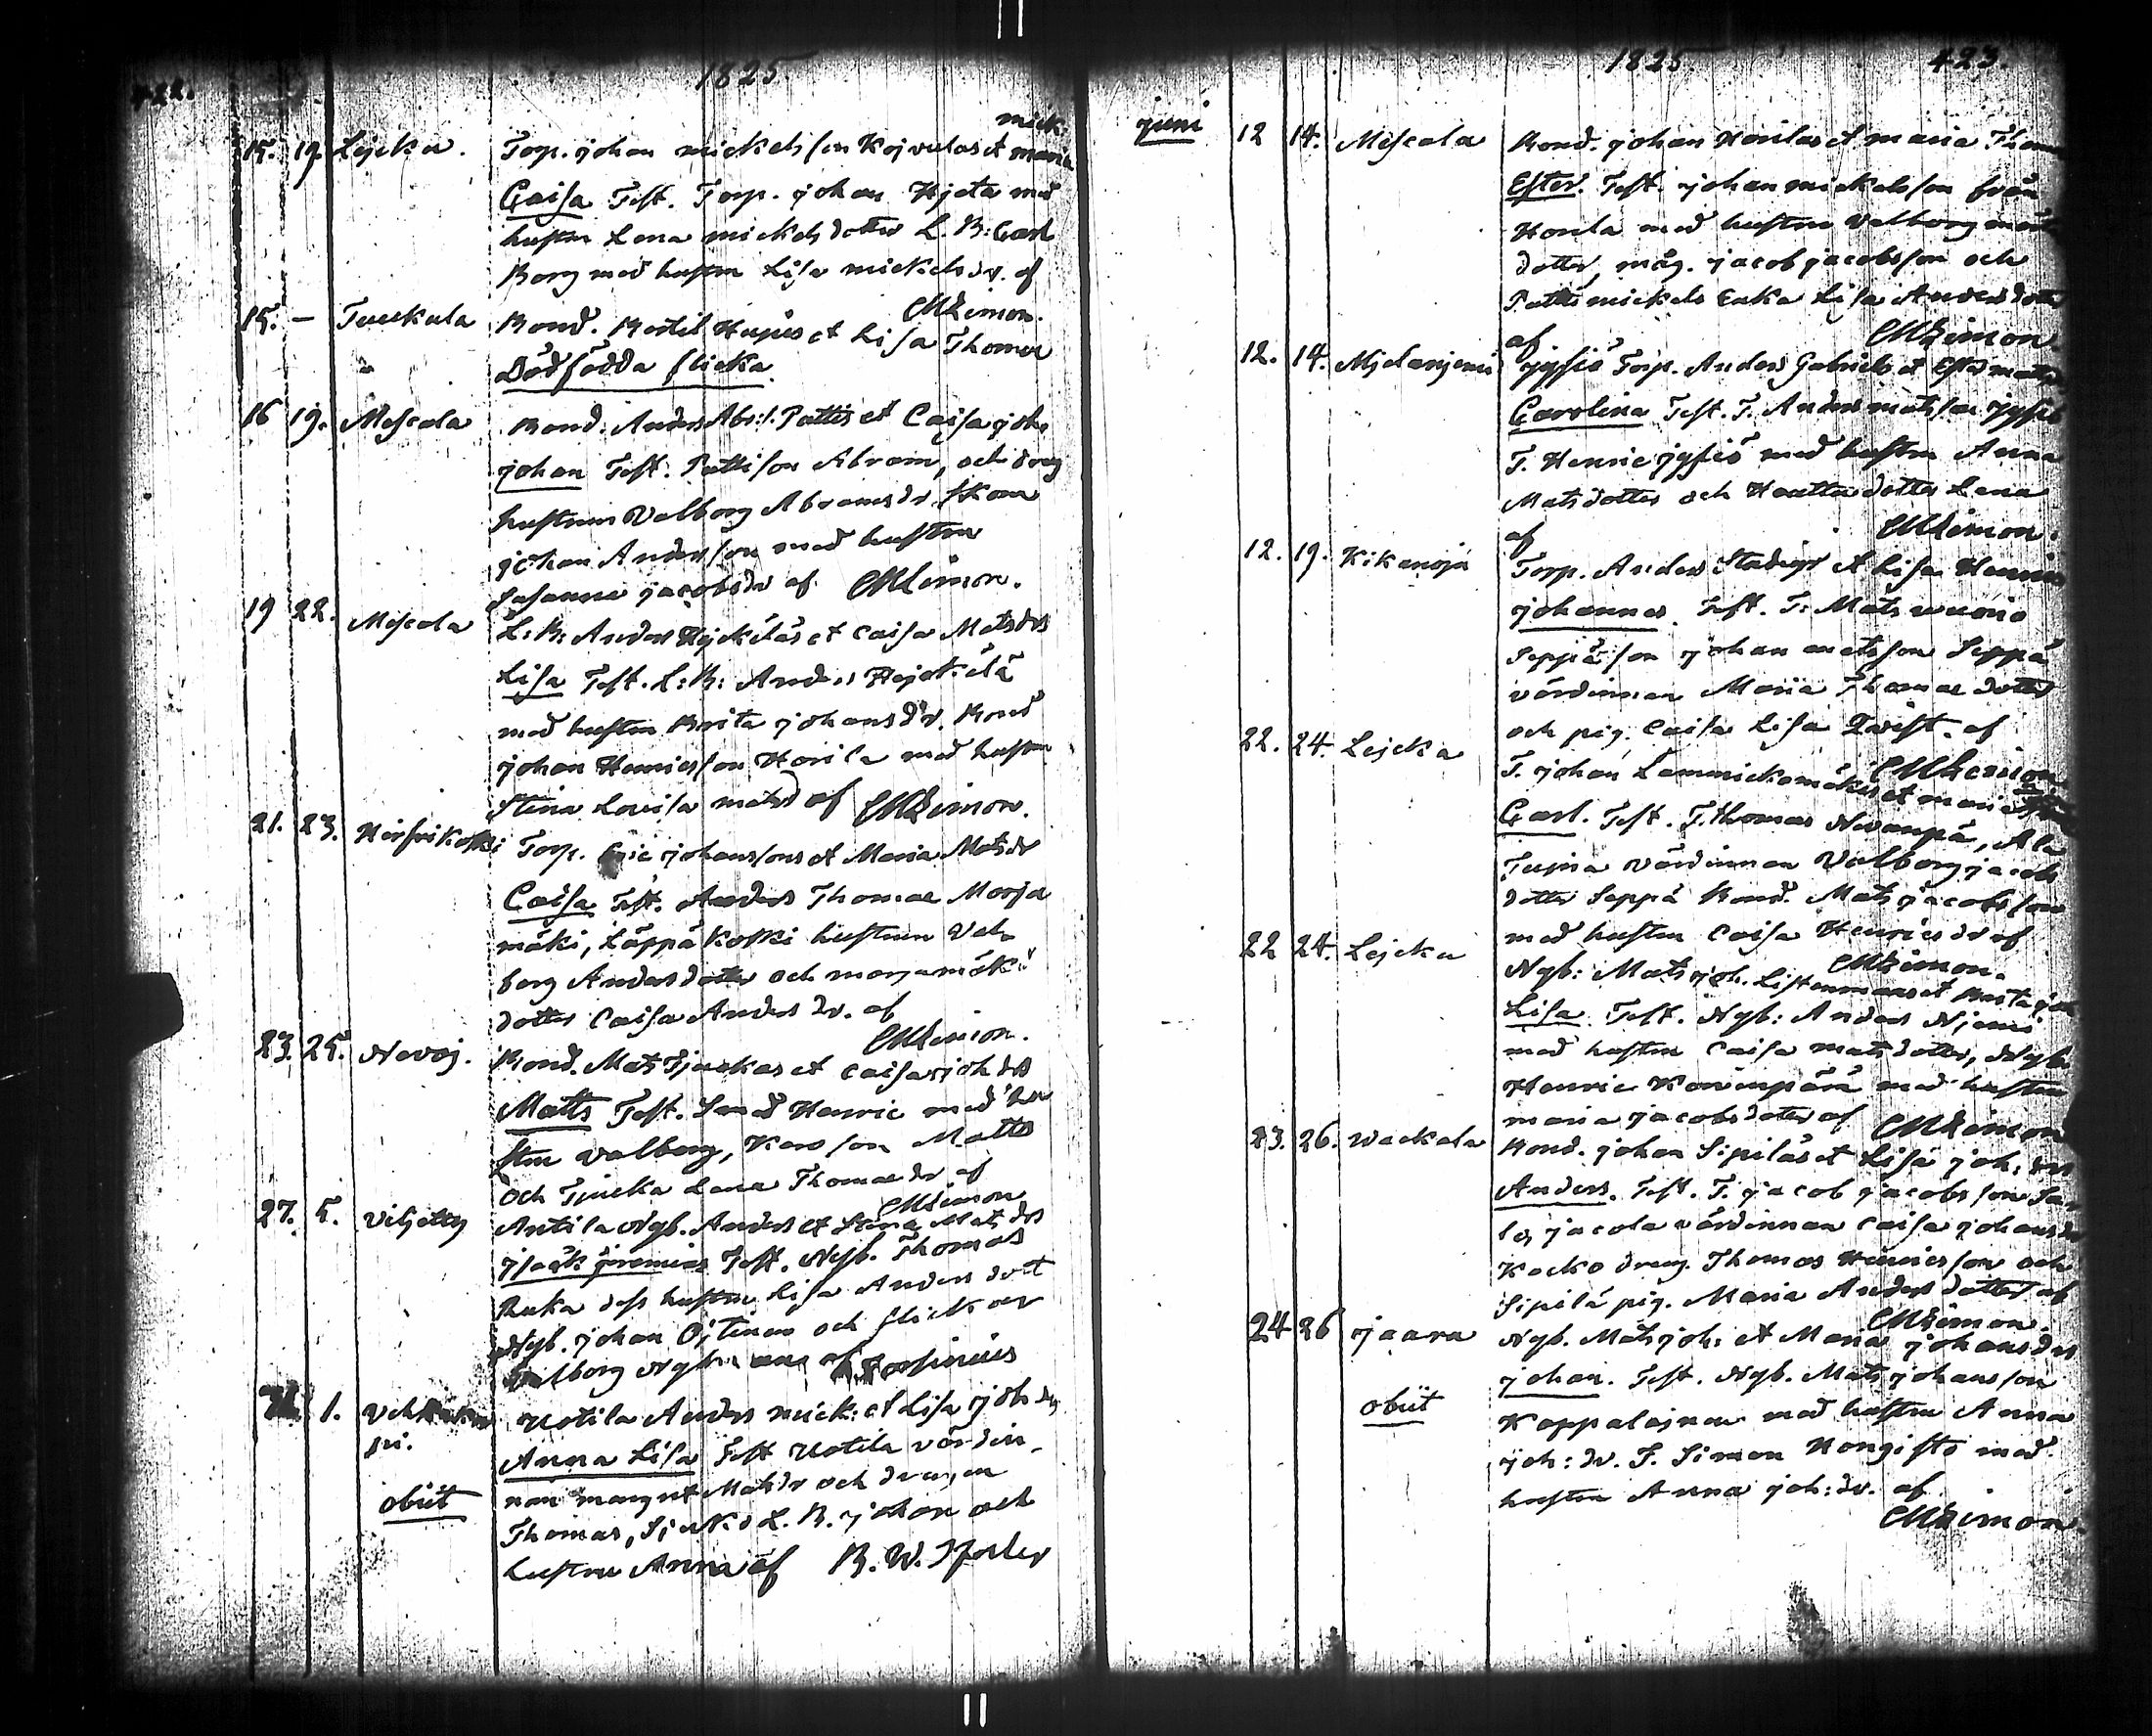 422.
1825.
mick:
15. 19. Lejcka. Torp. johan mickelsson Kojvulas et maria
Caisa Test. Torp. johan Hjeta med
hustru Lena mickelsdotter L. B: Carl
Borg med hustru Lisa mickelsdr. af
MLimon.
15. — Tuckula Bond. Bertil et Lisa Thomae
Dödfödda flicka
16 19. Mescala Bond. Anders Abr:s. Pattis et Caisa joh.
johan Test. Pattis son Abram, och dreng
hustrun Valborg Abramsdr.
johan Andersson med hustru
Susanna jacobsdr af MLimon.
19 22. Mescala L: B: Anders Hyckiläs et Caisa Matsdr
Lisa Test. L: B: Anders
med hustru Brita johansdr. Bond
johan Henricsson Horila med hustru
Stina Lovisa matsd af MLimon.
21. 23. Hirfvikoski Torp. Eric johanssons et Maria Matsdr
Caisa Test. Anders Thomae Morja
mäki, Läppäkoski hustrun Val-
borg Andersdotter och morjamäki
dotter Caisa Anders dr. af
MLimon.
23. 25. Nevoj. Bond. Mats Tjuckas et Caisa joh dr
Matts Test. Smed Henric med hu
stru Valborg, son Matts
och Tjucka Lena Thomaedr af
MLimon
27. 5. Viljetty Antila Nyb. Anders et Stina Mats dr
jsack jeremias Test. Nyb. Thomas
Ruka dess hustru Lisa Anders dot
Nyb. johan Ojtinen och flickan
Valborg af
1. Uotila Anders mick: et Lisa joh dr
Anna Lisa Test Uotila värdin-
obiit nan margret Matsdr och drengen
Thomas, L. B. johan och
hustru Anna af B. W.
1825 423.
juni 12 14. Mescala Bond. johan Horilas et maria Thom
Ester. Test. johan mickelsson från
Horila med hustru Valborg
dotter, måg. jacob jacobsson och
Pattis mickels Enka Lisa Andersdotter
af MLimon.
12. 14. jysiö Torp. Anders Gabriels et Ester mats
Carolina Test. T. Anders matsson jysiö
T. Henric jysiö med hustru Anna
Matsdotter och dotter Lena
af MLimon.
12. 19. Kikenoja Torp. Anders et Lisa Henrics
johannes. Test. T: Mats wuorio
Seppä son johan matsson Seppä
värdinnan Maria Thomae dotter
och pig. Caisa Lisa Qvist. af
MLimon
22. 24. Lejcka T. johan Lammickomäkis et maria
Carl. Test. T. Thomas Nevanpä, Ala
Tupna värdinnan Valborg jacobs
dotter Seppä Bond. Mats jacobsson
med hustru Caisa Henrics dr af
MLimon.
22 24. Lejcka Nyb: Mats joh. Listenmaas et Brita joh
Lisa. Test. Nyb: Anders Njemi
med hustru Caisa matsdotter, Nyb.
Henric Korvenpää med hustru
maria jacobsdotter af MLimon
23. 26. Wackala Bond. johan Sipiläs et Lisa joh: dr
Anders. Test. T. jacob jacobsson
jacola värdinnan Caisa johansdr
Kocko dreng. Thomas Henricsson och
Sipilä pig. Maria Andersdotter af
MLimon.
24 26 jaara Nyb. Mats joh: et Maria johansdr
johan. Test. Nyb. Mats johansson
obiit Koppalojnen med hustru Anna
joh: dr. T. Simon Hongisto med
hustru Anna joh: dr. af
MLimon.